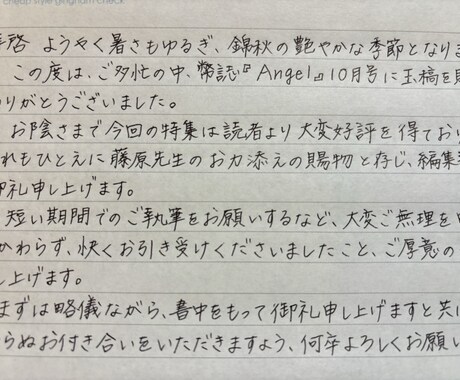 cheap style gingham check
拝啓 ようやく暑さもゆるぎ、錦秋の艶やかな季節となりま
この度は、ご多忙の中、弊誌『Angel』10月号に玉稿を
りがとうございました。
お陰さまで今回の特集は読者より大変好評を得ており
れもひとえに藤原先生のお力添えの賜物と存じ、編集
御礼申し上げます。
短い期間でのご執筆をお願いするなど、大変ご無理を
かわらず、快くお引き受けくださいましたこと、ご厚意の
し上げます。
まずは略儀ながら、書中をもって御礼申し上げますと共に
らぬお付き合いをいただきますよう、何卒よろしくお願い